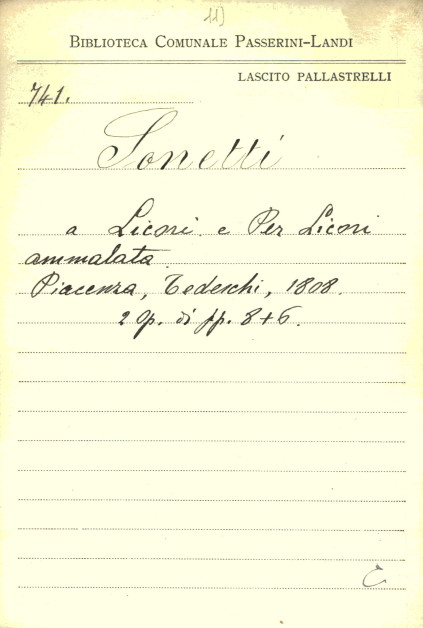 11)
BIBLIOTECA COMUNALE PASSERINI-LANDI
LASCITO PALLASTRELLI
741.
Sonetti
a Licori e Per Licori
ammalata.
Piacenza, Tedeschi, 1808.
2 op. di pp. 8+6.